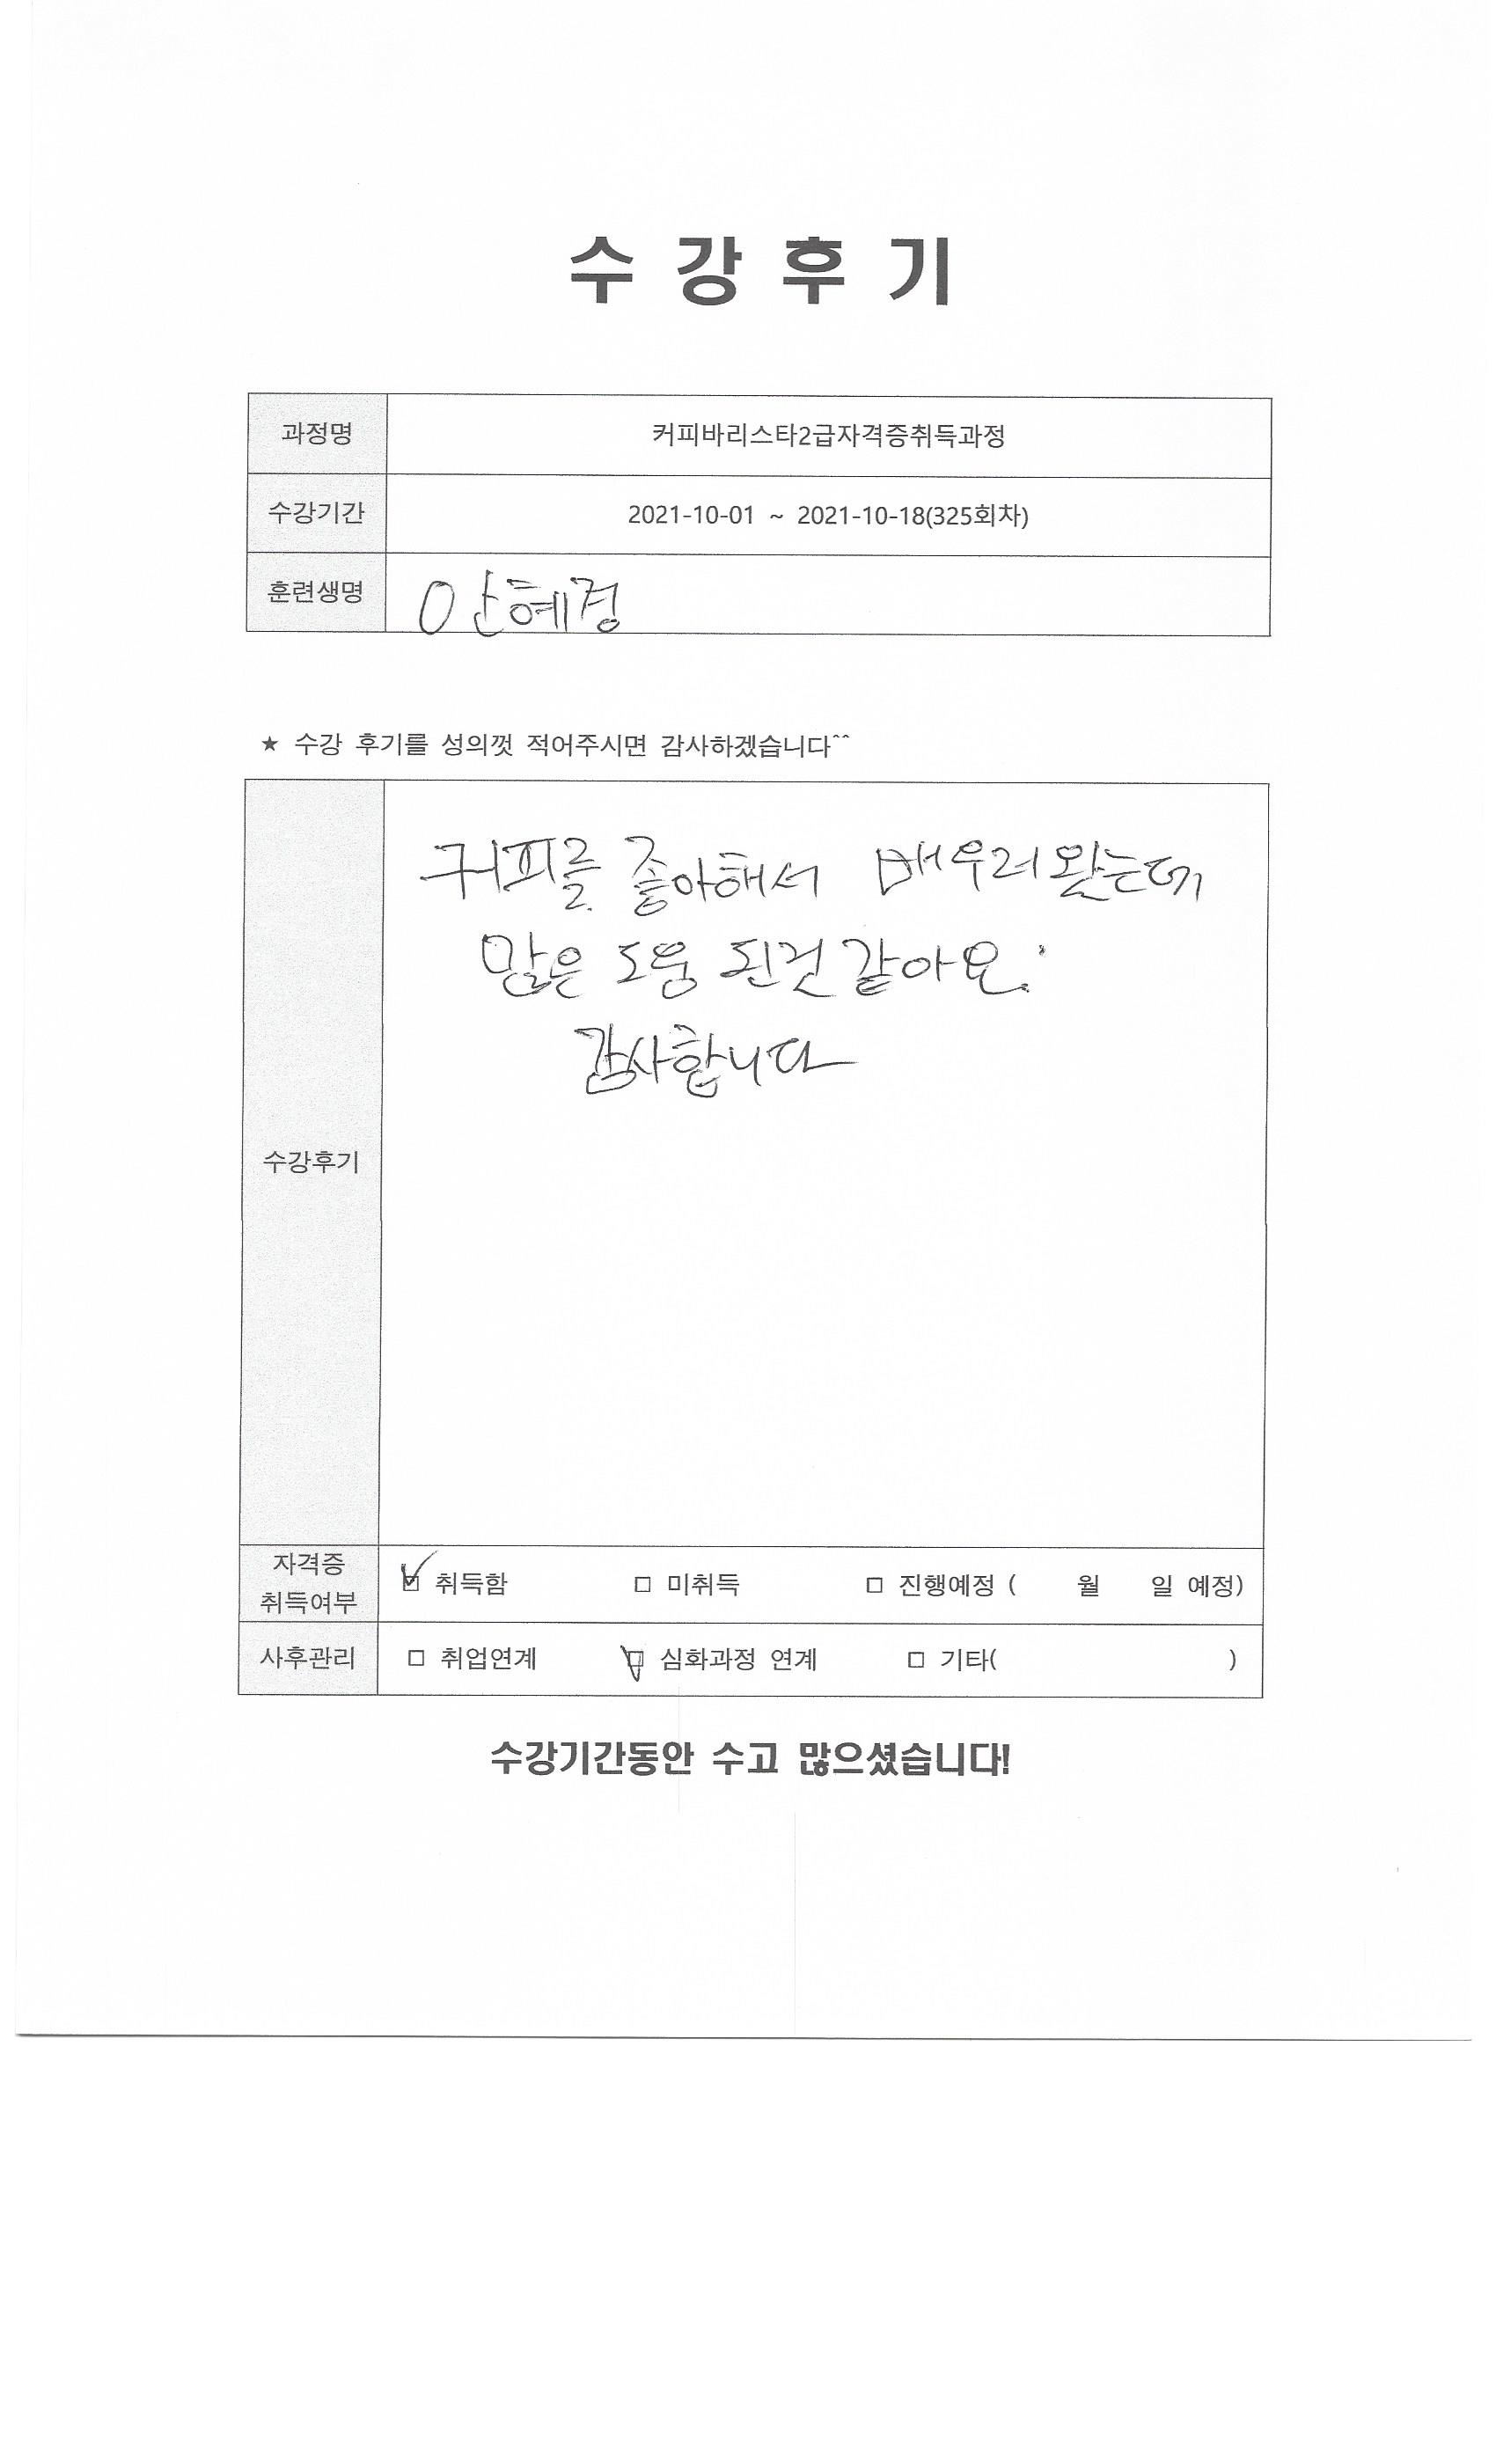 수 강 후 기
과정명 커피바리스타2급자격증취득과정
수강기간 2021-10-01 ~ 2021-10-18(325회차)
훈련생명 안혜경
★ 수강 후기를 성의껏 적어주시면 감사하겠습니다^^
커피를 좋아해서 배우러 왔는데
많은 도움 된것 같아요.
감사합니다
수강후기
자격증
취득여부 ☑ 취득함 □ 미취득 □ 진행예정 ( 월 일 예정)
사후관리 □ 취업연계 ☑ 심화과정 연계 □ 기타( )
수강기간동안 수고 많으셨습니다!